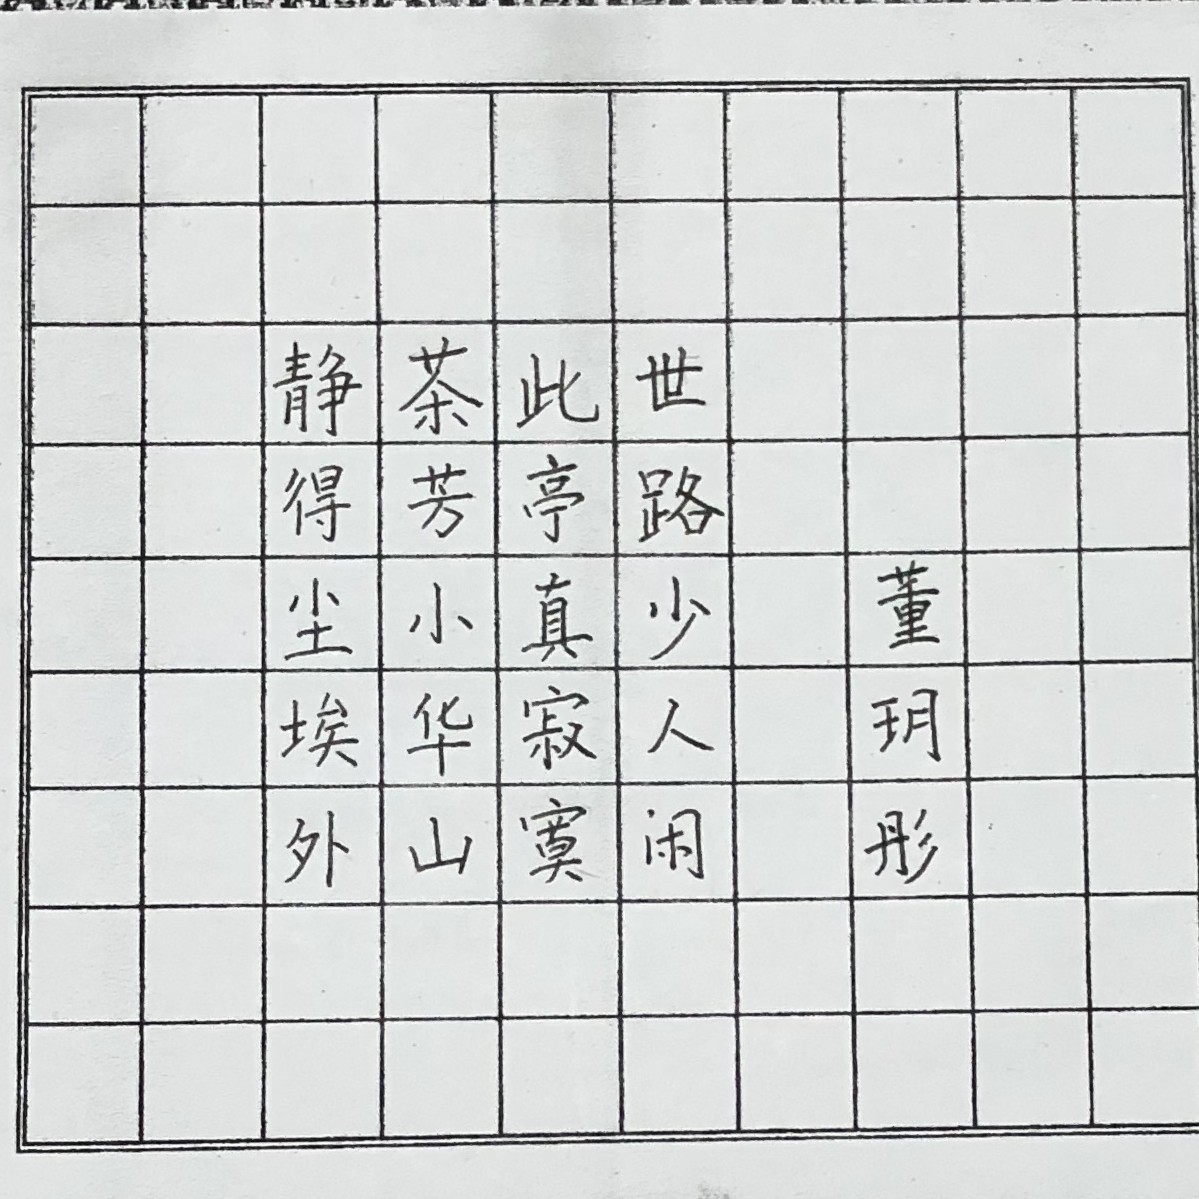 静得尘埃外
茶芳小华山
此亭真寂寞
世路少人闲
董玥彤